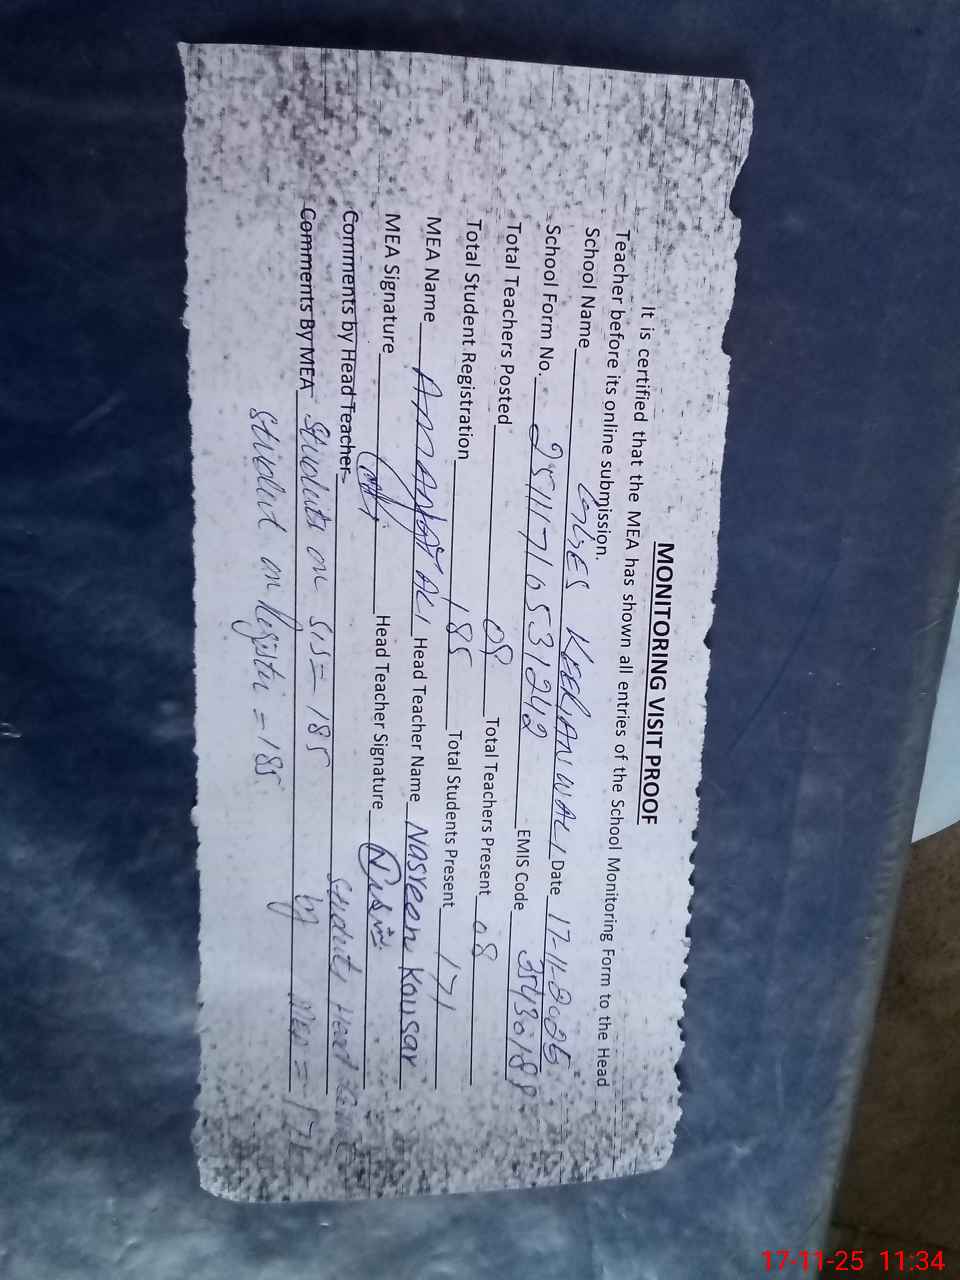 MONITORING VISIT PROOF
It is certified that the MEA has shown all entries of the School Monitoring Form to the Head
Teacher before its online submission.
School Name GGES KEERIANWALI Date 17-11-2025
School Form No. 25111710531242 EMIS Code 35430188
Total Teachers Posted 08 Total Teachers Present 08
Total Student Registration 185 Total Students Present 171
MEA Name ALI Head Teacher Name Nasreen Kousar
MEA Signature Head Teacher Signature
Comments by Head Teacher Students Head
Comments By MEA Students on SIS = 185 by MEA = 171
Student on Register = 185
17-11-25 11:34